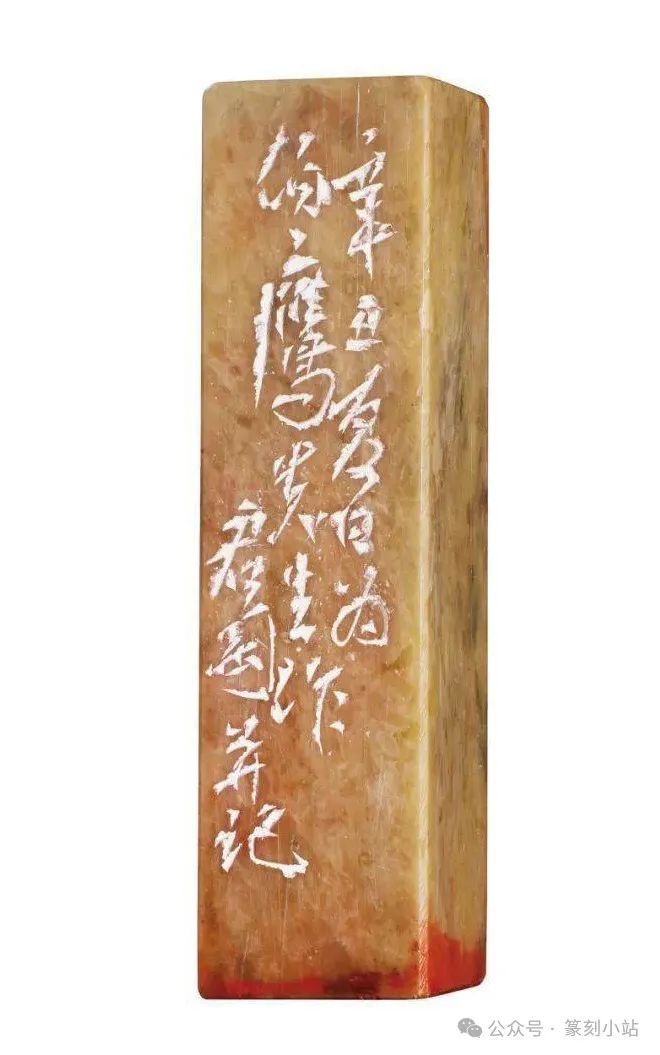 辛丑夏日为
之鹰先生作
君并记
公众号 · 篆刻小站